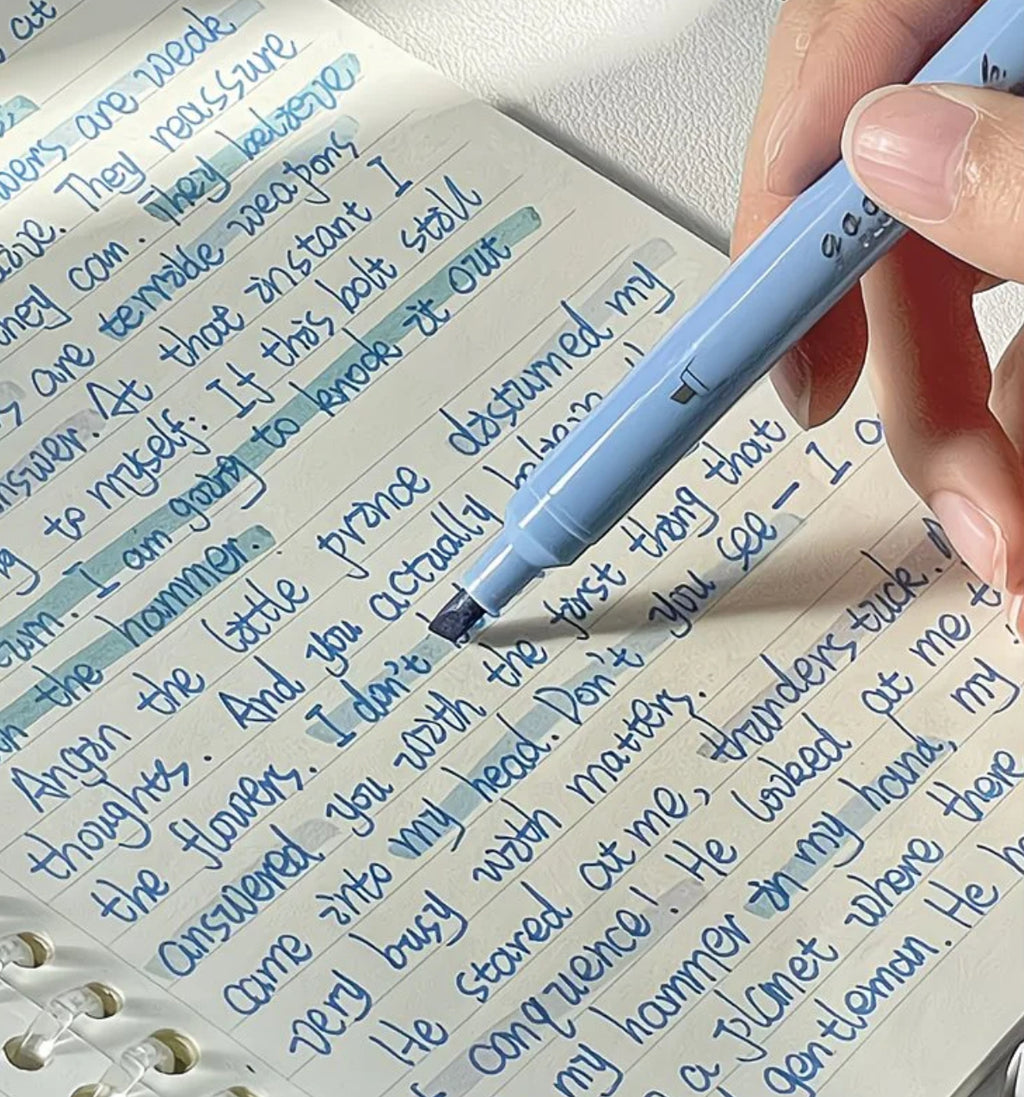 at
are weak
They reassure
they can. They believe
are terrible weapons
answer. At that instant I
to myself: If this bolt still
turn. I am going to knock it out
the hammer.
Angon the little prince disturned my
thoughts. And you actually
the flowers. I don't
answered you with the first thing that
came into my head. Don't you see – I
very busy with matters.
He stared at me, thunderstuck.
conquence! He looked at me
my hammer in my hand, my
a planet where there
gentleman. He